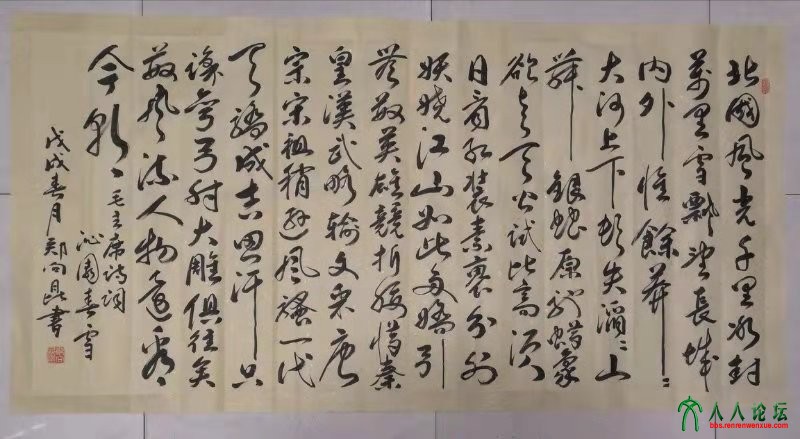 北國風光千里冰封
萬里雪飄望長城
内外惟餘莽〻
大河上下頓失滔〻山
舞銀蛇原馳蜡象
欲与天公試比高須
日看红装素裹分外
妖嬈江山如此多嬌引
無数英雄競折腰惜秦
皇漢武略输文采唐
宗宋祖稍逊風騷一代
天驕成吉思汗只
識彎弓射大雕俱往矣
数風流人物還看
今朝
毛主席诗词
沁園春雪
戊戌春月郑向昆書
人人论坛
bbs.renrenwenxue.com